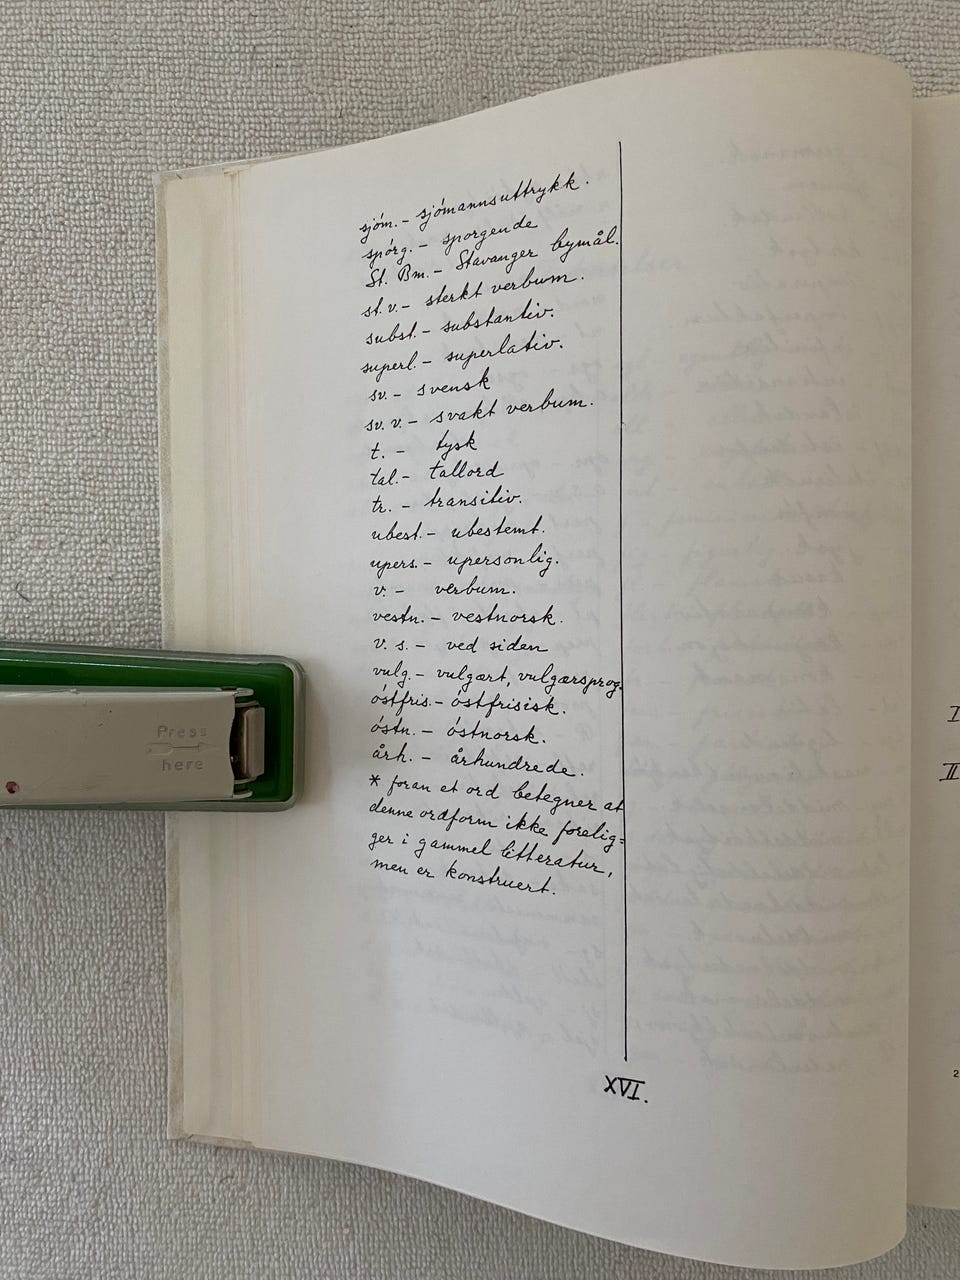 sjóm. - sjómannsuttrykk.
spórg. - sporgende
St. Bm. - Stavanger bymål.
st. v. - sterkt verbum.
subst. - substantiv.
superl. - superlativ.
sv. - svensk
sv. v. - svakt verbum.
t. - tysk
tal. - tallord
tr. - transitiv.
ubest. - ubestemt.
upers. - upersonlig.
v. - verbum.
vestn. - vestnorsk.
v. s. - ved siden
vulg. - vulgært, vulgærsprog.
óstfris. - óstfrisisk.
óstn. - óstnorsk.
årh. - århundrede.
* foran et ord betegner at
denne ordform ikke forelig=
ger i gammel litteratur,
men er konstruert.
XVI.
Press
here
I
II
2